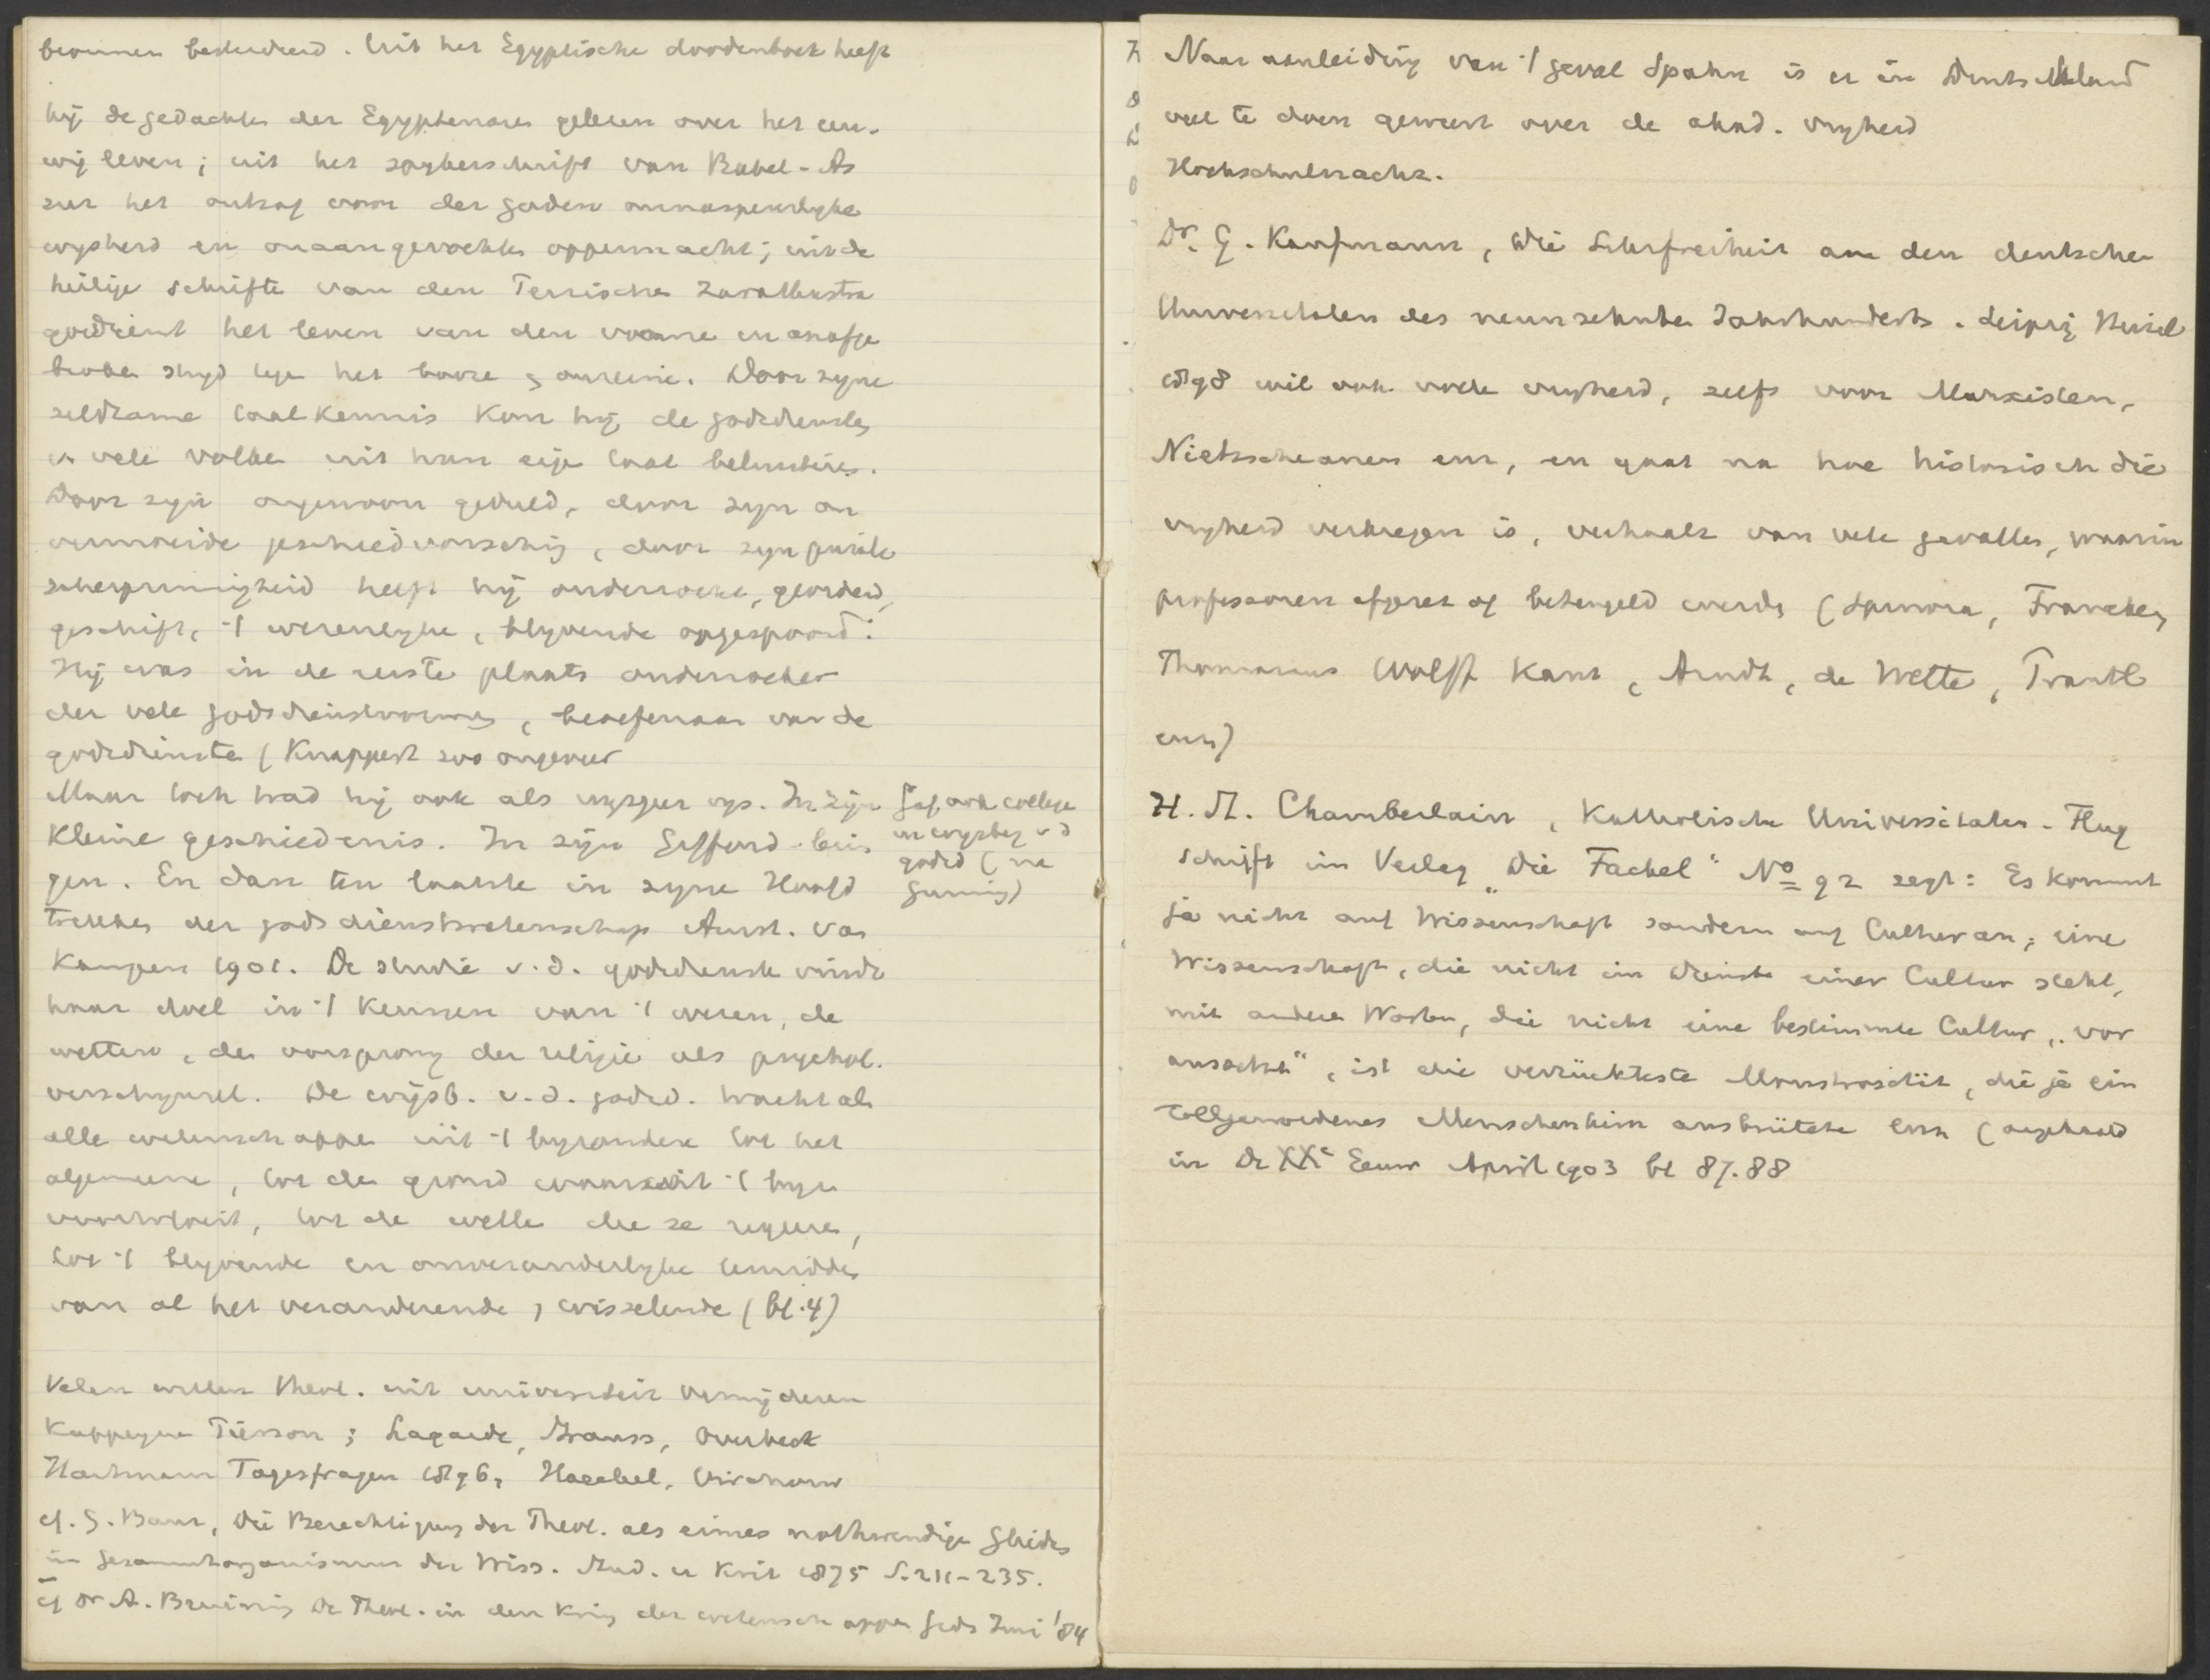 bronnen bestudeerd. Uit het Egyptische doodenboek heeft
hij de gedachte der Egyptenaren gelezen over het eeu-
wig leven; uit het spijkerschrift van Babel-As
sur het ontzag voor der goden onnaspeurlijke
wijsheid en onaangerockte oppermacht; uit de
heilige schrifte van den Perzische Zarathustra
godsdienst het leven van den vrome en onafge
broke strijd tege het booze & onreine. Door zijne
zeldzame taalkennis kon hij de godsdiensten
v. vele volke uit hun eige taal beluisteren.
Door zijn ongewoon geduld, door zijn on
vermoeide geschiedvorsching, door zijn
scherpzinnigheid heeft hij onderzocht, geordend,
geschift, 't wezenlijke, blijvende opgespoord.
Hij was in de eerste plaats onderzoeker
der vele godsdienstvormen, beoefenaar van de
godsdienste (Knappert zoo ongeveer
Maar toch trad hij ook als wijsgeer op. In zijn
Kleine geschiedenis. In zijn Gifford-lezin
gen. En dan ten laatste in zijne Hoofd
trekken der godsdienstwetenschap Amst. van
Kampen 1901. De studie v.d. godsdienst vindt
haar doel in 't kennen van 't wezen, de
wetten, den oorsprong der religie als psychol.
verschijnsel. De wijsb. v.d. godsd. tracht als
alle wetenschappe uit 't byzondere tot het
algemeene, tot de grond waaruit 't byz
voortvloeit, tot de wette die ze regeren,
tot 't blijvende en onveranderlijke temidden
van al het veranderende, wisselende (bl. 4)
Gaf ook college
in wijsbeg v d
godsd (na
Gunning)
Velen willen theol. uit universiteit verwijderen
Kappeyne Pierson; Lagarde, Strauss, Overbeck
Hartmann Tagesfragen 1896, Haeckel, Virchow
cf. G. Baur, Die Berechtigung der Theol. als eines nothwendige Gliedes
im Gesammtorganismus der Wiss. Stud. u Krit 1875 S. 211-235.
cf Dr A. Bruining De Theol. in den kring der wetenschappen Gids Juni '84
Naar aanleiding van 't geval Spahn is er in Deutschland
veel te doen geweest over de akad. vrijheid
Hochschulnachr.
Dr. G. Kaufmann, Die Lehrfreiheit an den deutschen
Universitäten des neunzehnten Jahrhunderts. Leipzig Hirzel
1898 wil ook volle vrijheid, zelfs voor Marxisten,
Nietzscheanen enz, en gaat na hoe historisch die
vrijheid verkregen is, verhaalt van vele gevallen, waarin
professoren afgezet of beteugeld werden (Spinoza, Francke,
Thomasius Wolff Kant, Arndt, de Wette, Prantl
enz)
H. St. Chamberlain, Katholische Universitaten. Flug
schrift im Verlag "Die Fackel" No 92 zegt: Es kommt
ja nicht auf Wissenschaft sondern auf Cultur an; eine
Wissenschaft, die nicht im Dienste einer Cultur steht,
mit andern Worten, die nicht eine bestimmte Cultur "vor
aussetzt", ist die verrückteste Monstrosität, die je ein
tollgewordenes Menschenhirn ausbrütete enz (aangehaald
in De XXe Eeuw April 1903 bl 87.88